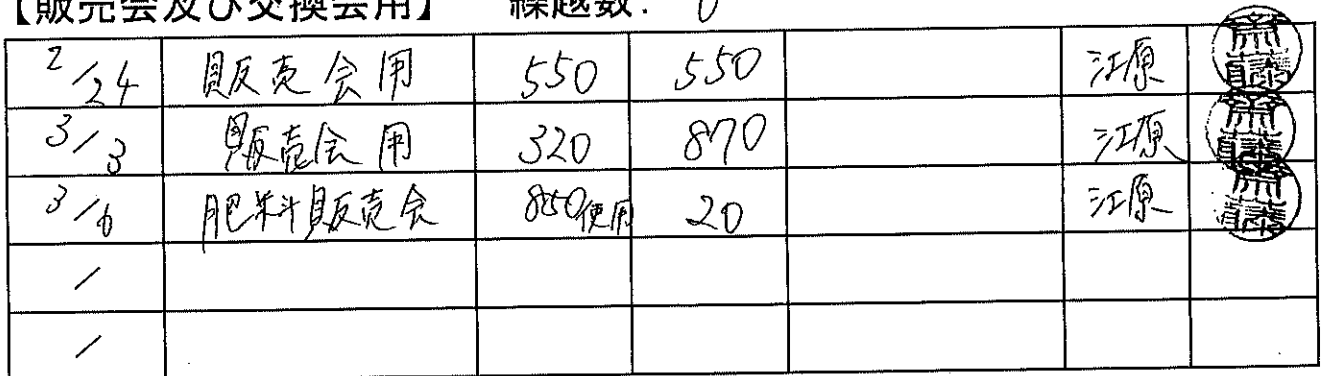 【販売会及び交換会用】 繰越数: 0
2/24 販売会用 550 550 江原
3/3 販売会用 320 870 江原
3/6 肥料販売会 850使用 20 江原
/
/